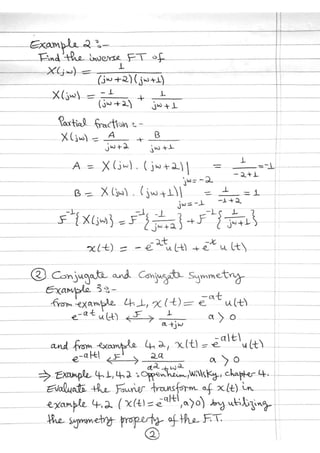 Example 2 :-
Find the inverse FT of
X(jw) = 1 / (jw+2)(jw+1)
X(jw) = -1 / (jw+2) + 1 / jw+1
Partial fraction :-
X(jw) = A / jw+2 + B / jw+1
A = X(jw). (jw+2)| jw=-2 = 1 / -2+1 = -1
B = X(jw). (jw+1)| jw=-1 = 1 / -1+2 = 1
F⁻¹{X(jw)} = F⁻¹{-1 / jw+2} + F⁻¹{1 / jw+1}
x(t) = - e^-2t u(t) + e^-t u(t)
② Conjugate and Conjugate Symmetry
Example 3 :-
from example 4.1, x(t) = e^-at u(t)
e^-at u(t) <-F-> 1 / a+jw a > 0
and from example 4.2, x(t) = e^-a|t| u(t)
e^-a|t| <-F-> 2a / a²+w² a > 0
⇒ Example 4.1, 4.2 : Oppenheim, Willsky, chapter 4.
Evaluate the Fourier transform of x(t) in
example 4.2 (x(t) = e^-a|t|, a>0) by utilizing
the symmetry property of the F.T.
②